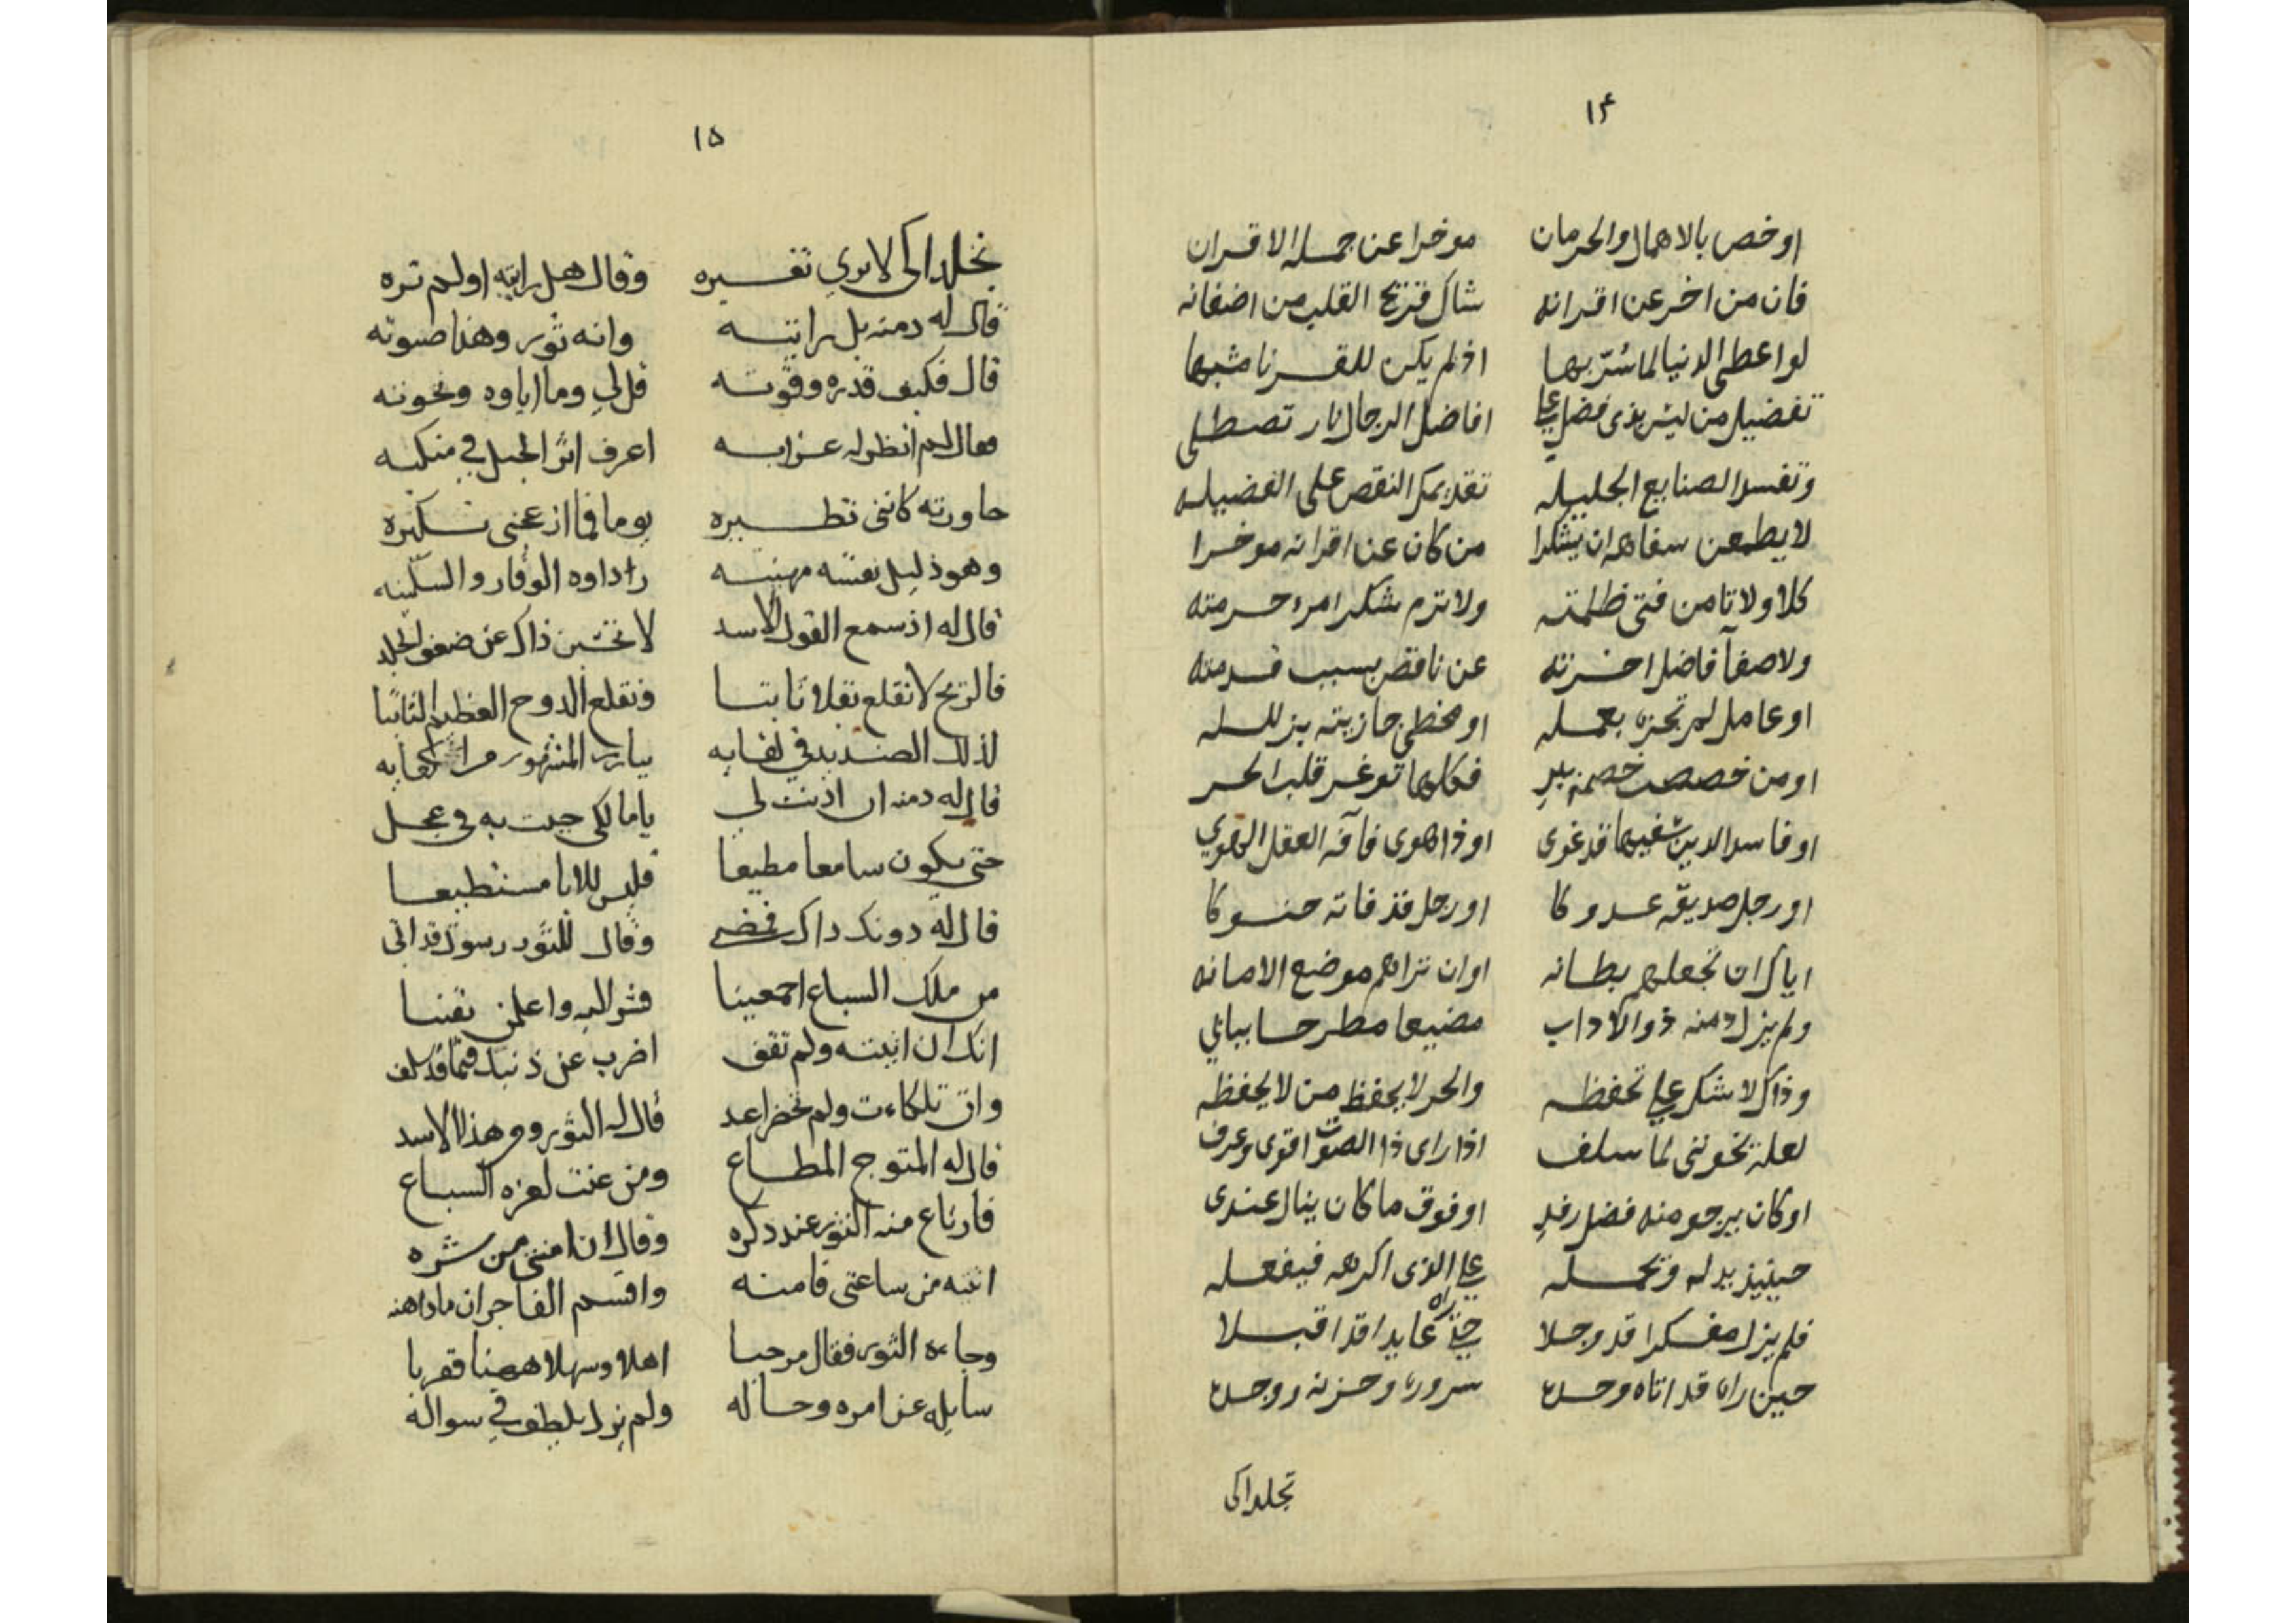 ١٤
او خص بالاهمال والحرمان موخرا عن جمله الاقران
فان من اخر عن اقرانه شاك قريح القلب من اضغانه
لو اعطى الدنيا لما سُرّ بها اذ لم يكن للقرنا مشبها
تفضيل من ليس بذى فضل على افاضل الرجال نار تصطلى
وتفسد الصنايع الجليله تقديمك النقص على الفضيله
لا يطمعن سفاها ان يشكرا من كان عن اقرانه موخرا
كلا ولا تامن فتى ظلمته ولا ترم شكر امرء حرمته
ولا صفآ فاضل اخرته عن ناقص بسبب قدمته
او عامل لم تجزه بعمله او مخطى جازيته بزلله
او من خصصت خصمه ببر فكلها توغر قلب الحر
او فاسد الدين سفيها قد غوى او ذا هوى فآفه العقل الهوي
او رجل صديقه عدوكا او رجل قد فاته حنوكا
اياك ان تجعلهم بطانه او ان تراهم موضع الامانه
ولم يزل دمنه ذو الاداب مضيعا مطرحا ببابي
وذاك لا شك على تحفظه والحر لا يحفظ من لا يحفظه
لعله تخوننى لما سلف اذا راى ذا الصوت اقوى وعرف
او كان يرجو منه فضل رفد او فوق ما كان ينال عندى
حينيذ يدله وتحمله على الذى اكرهه فيفعله
فلم يزل مفكرا قد وجلا حتى راه عايدا قد اقبلا
حين راه قد اتاه وحده سروره وحزنه ووجده
تجلداكى
١٥
تجلدا كى لا يري تغيره وقال هل رايته او لم تره
قال له دمنه بل رايته وانه ثور وهذا صوته
قال فكيف قدره وقوته قل لي وما اباوه ونخوته
فقال لم انظر له غرابه اعرف اثر الجبل في منكبه
حاورته كاننى نظيره يوما فما ازعجنى نكيره
وهو ذليل نفسه مهينه راداوه الوقار والسكينه
قال له اذ سمع القول الاسد لا تحسبن ذاك عن ضعف الجلد
فالريح لا تقلع نقلا نابتا وتقلع الدوح العظيم الثابتا
لذلك الصنديد في لقايه يبارز المشهور من اكفايه
قال له دمنه ان اذنت لي يا مالكى جيت به في عجل
حتى يكون سامعا مطيعا فليس للابا مستطيعا
قال له دونك ذاك فمضى وقال للثور رسول قد اتى
من ملك السباع اجمعينا فسر اليه واعلمن يقينا
انك ان اتيته ولم تقف اضرب عن ذنبك فيما قد سلف
وان تلكاءت ولم تحضر اعد قال له الثور ومن هذا الاسد
قال له المتوج المطاع ومن عنت لعزه السباع
فارتاع منه الثور عند ذكره وقال ان امنتنى من شره
اتيته من ساعتى فامنه واقسم الفاجر ان ما داهنه
وجاءه الثور فقال مرحبا اهلا وسهلا ههنا قربا
سايله عن امره وحاله ولم يزل يلطف في سواله